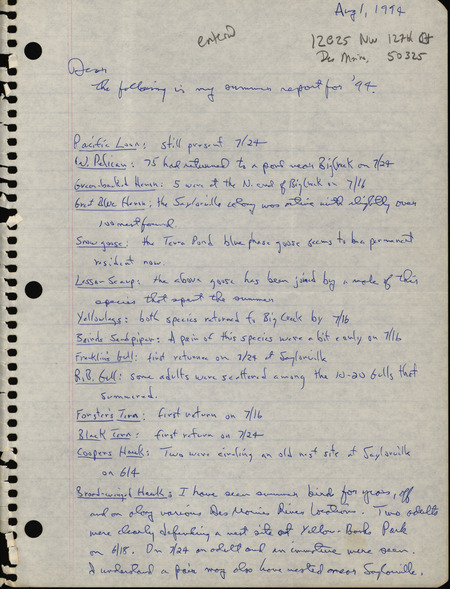 Aug 1, 1994
entered
12825 NW 127th Ct
Des Moines, 50325
Dear
the following is my summer report for '94.
Pacific Loon: still present 7/24
W. Pelican: 75 had returned to a pond near Big Creek on 7/24
Green-backed Heron: 5 were at the N. end of Big Creek on 7/16
Great Blue Heron: the Saylorville colony was active with slightly over
100 nests found
Snow goose: the Terra Pond blue phase goose seems to be a permanent
resident now.
Lesser Scaup: the above goose has been joined by a male of this
species that spent the summer
Yellowlegs: both species returned to Big Creek by 7/16
Baird's Sandpiper: A pair of this species were a bit early on 7/16
Franklin's Gull: first returnee on 7/24 at Saylorville
R.B. Gull: some adults were scattered among the 10-20 Gulls that
summered.
Forster's Tern: first return on 7/16
Black Tern: first return on 7/24
Coopers Hawk: Two were circling an old nest site at Saylorville
on 6/4
Broad-winged Hawk: I have seen summer birds for years, off
and on along various Des Moines River locations. Two adults
were clearly defending a nest site at Yellow-Banks Park
on 6/15. On 7/24 an adult and an immature were seen.
I understand a pair may also have nested near Saylorville.